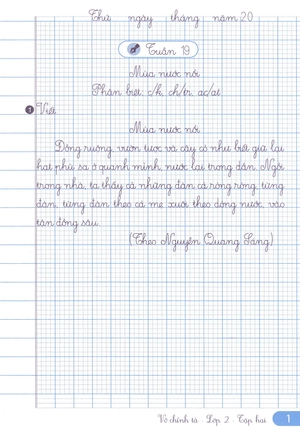 Thứ ngày tháng năm 20
Tuần 19
Mùa nước nổi
Phân biệt: c/k, ch/tr, ac/at
1 Viết
Mùa nước nổi
Đồng ruộng, vườn tược và cây cỏ như biết giữ lại
hạt phù sa ở quanh mình, nước lại trong dần. Ngồi
trong nhà, ta thấy cả những đàn cá ròng ròng, từng
đàn, từng đàn theo cá mẹ xuôi theo dòng nước, vào
tận đồng sâu.
(Theo Nguyễn Quang Sáng)
Vở chính tả - Lớp 2 - Tập hai 1